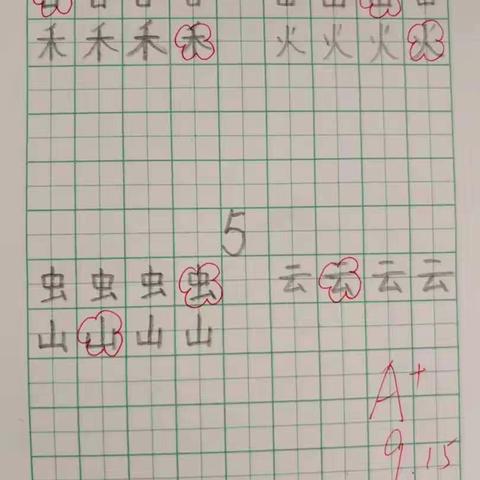 禾 禾 禾 禾 火 火 火 火
5
虫 虫 虫 虫 云 云 云 云
山 山 山 山
A+
9.15